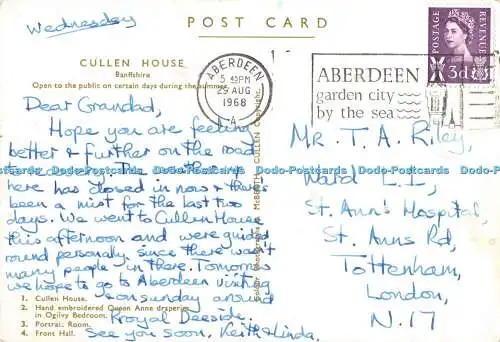 Wednesday
POST CARD
CULLEN HOUSE
Banffshire
Open to the public on certain days during the summer
Dear Grandad,
Hope you are feeling
better & further on the road
The weather
here has closed in now & there's
been a mist for the last two
days. We went to Cullen House
this afternoon and were guided
round personally since there wasn't
many people in there. Tomorrow
we hope to go to Aberdeen visiting
on sunday around
Royal Deeside.
See you soon, Keith & Linda.
1. Cullen House.
2. Hand embroidered Queen Anne draperies
in Ogilvy Bedroom.
3. Portrait Room.
4. Front Hall.
CULLEN
ABERDEEN
5.45PM
29 AUG
1968
A
ABERDEEN
garden city
by the sea
POSTAGE
REVENUE
3d
Mr. T. A. Riley,
Ward L.1.,
St. Ann's Hospital,
St. Anns Rd,
Tottenham,
London,
N.17
Dodo-Postcards Dodo-Postcards Dodo-Postcards Dodo-Postcards Dodo-Postcards